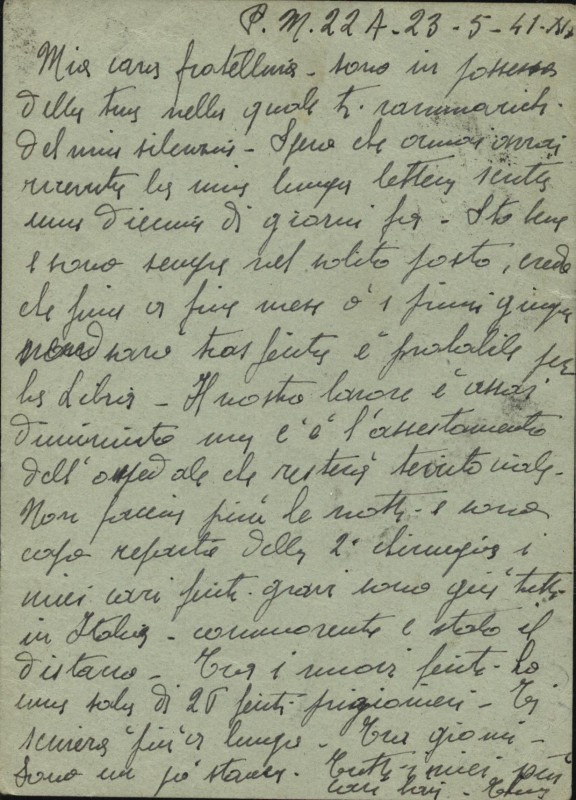 P. M. 22 A - 23 - 5 - 41 - XIX
Mia cara fratellina - sono in possesso
della tua nella quale ti rammarichi
del mio silenzio - Spero che ormai avrai
ricevuta la mia lunga lettera scritta
una diecina di giorni fa - Sto bene
e sono sempre nel solito posto, credo
che fino a fine mese o i primi giugno
non sarò trasferita è probabile per
la Libia - Il nostro lavoro è assai
diminuito ma c'è l'assestamento
dell'ospedale che resterà territoriale -
Non faccio più le notti e sono
capo reparto della 2ª chirurgia i
miei cari feriti gravi sono già tutti
in Italia - commovente è stato il
distacco - Tra i nuovi feriti ho
una sala di 25 feriti prigionieri - Ti
scriverò più a lungo - Tra giorni -
Sono un po' stanca. Tutti i miei più
cari baci -